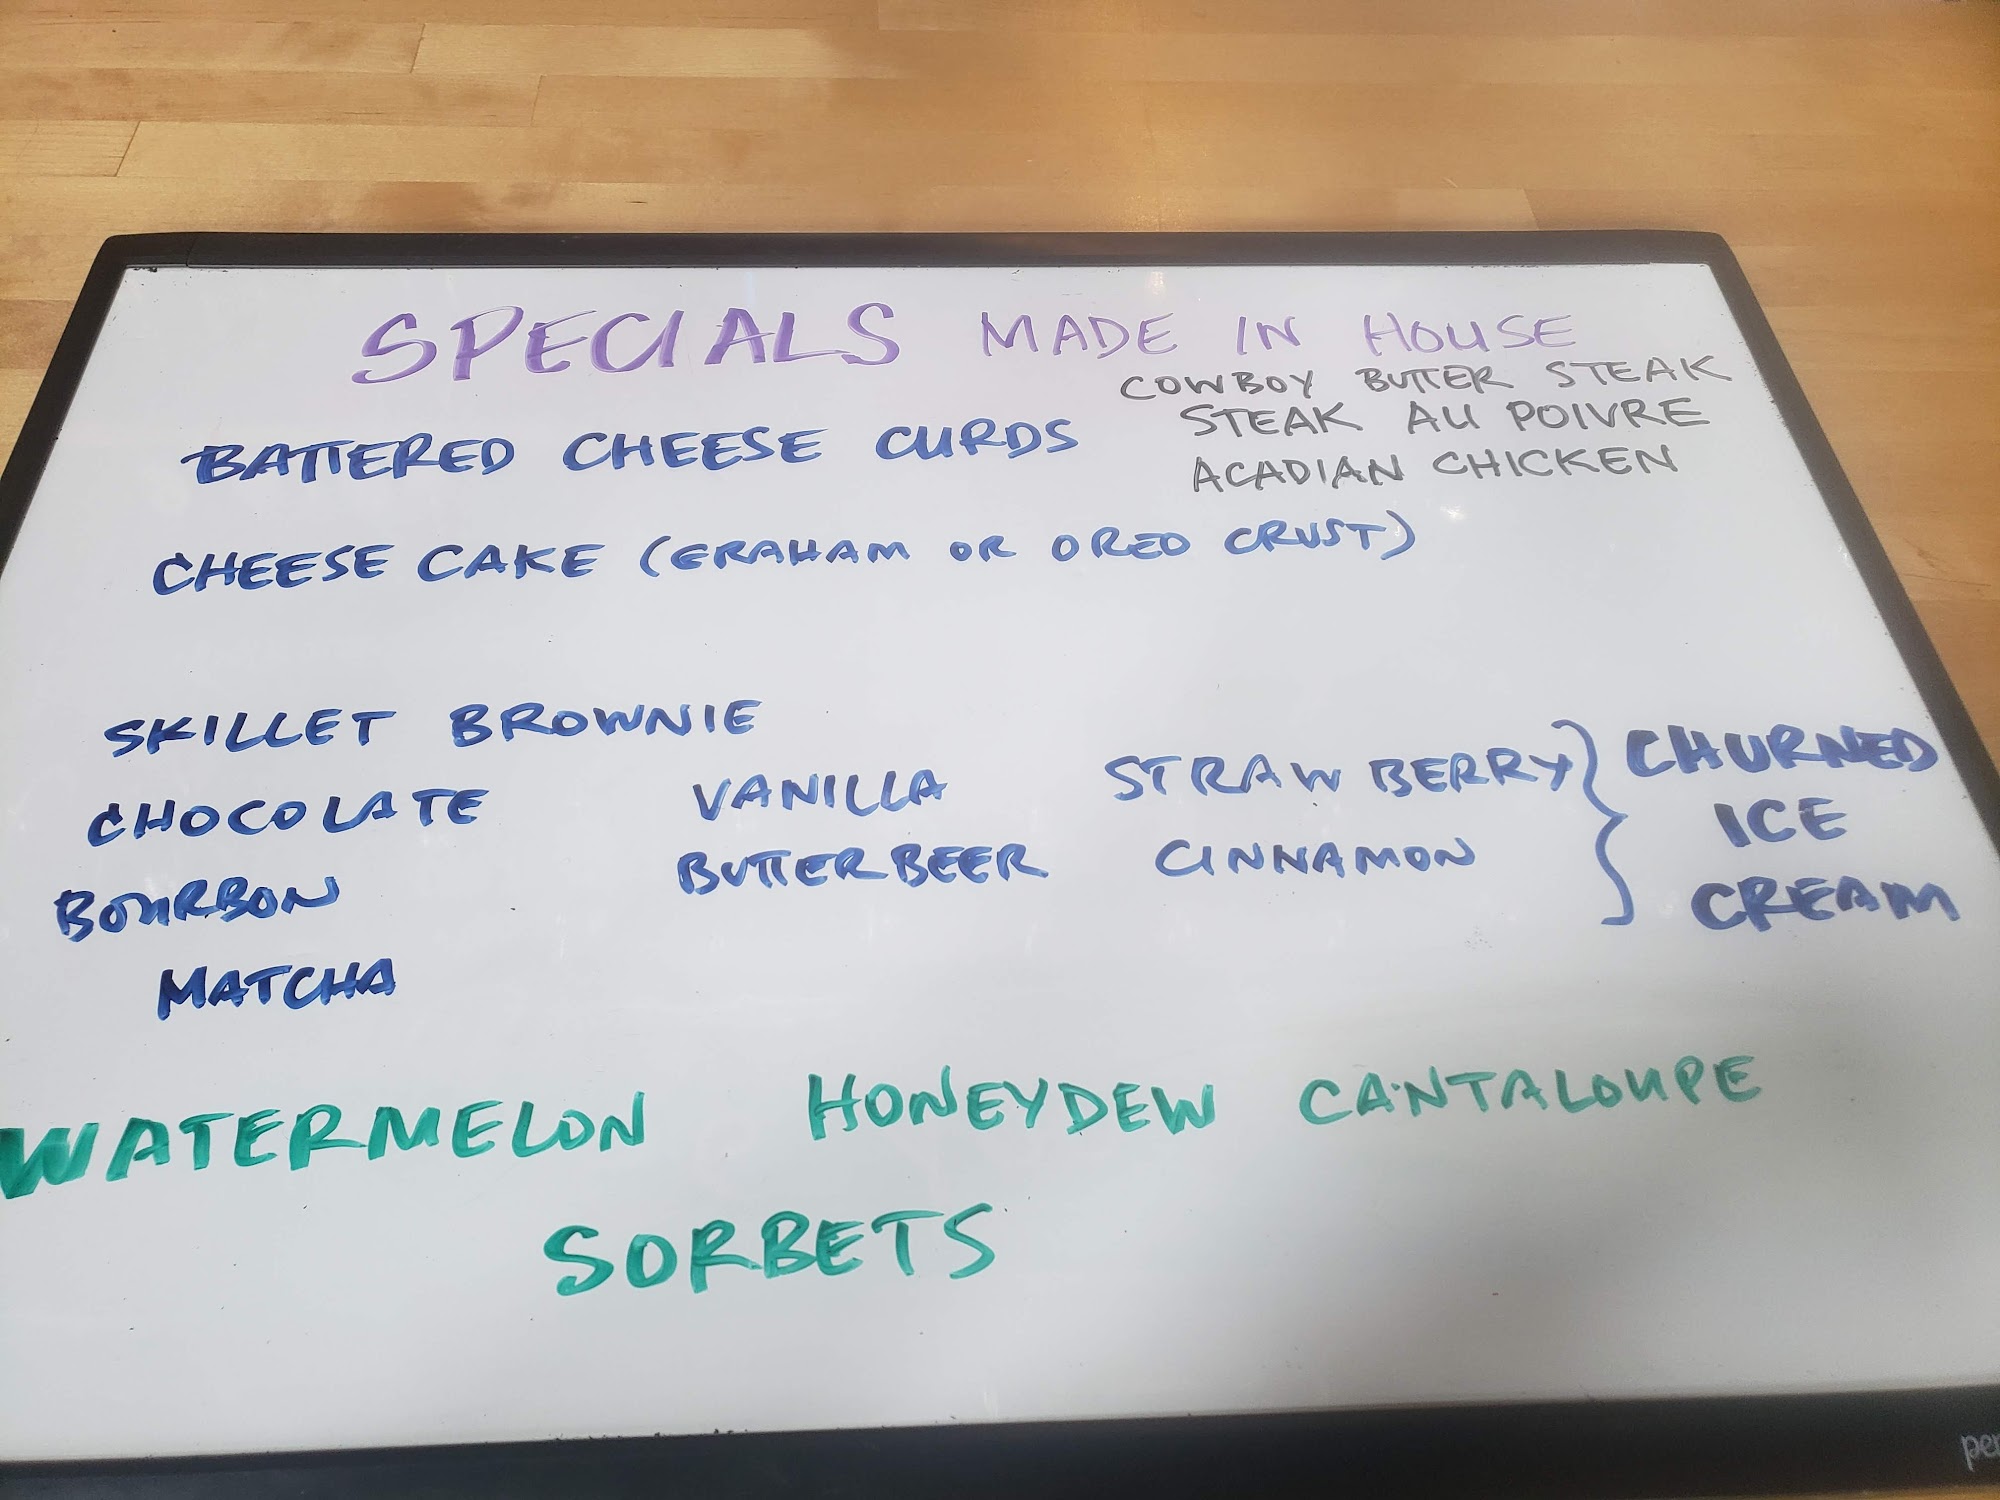 SPECIALS MADE IN HOUSE
COWBOY BUTTER STEAK
STEAK AU POIVRE
ACADIAN CHICKEN
BATTERED CHEESE CURDS
CHEESE CAKE (GRAHAM OR OREO CRUST)
SKILLET BROWNIE
CHOCOLATE VANILLA STRAWBERRY
BOURBON BUTTERBEER CINNAMON
MATCHA
} CHURNED
ICE
CREAM
WATERMELON HONEYDEW CANTALOUPE
SORBETS